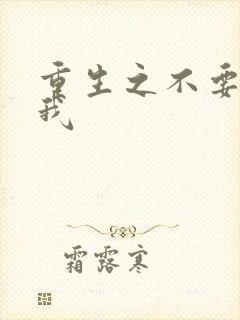 重生之不要
我
霜露寒